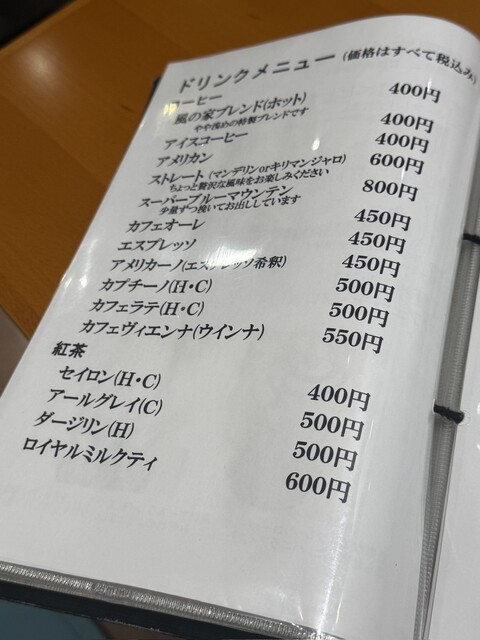 ドリンクメニュー (価格はすべて税込み)
コーヒー
風の家ブレンド(ホット) 400円
やや浅めの特製ブレンドです
アイスコーヒー 400円
アメリカン 400円
ストレート (マンデリンorキリマンジャロ) 600円
ちょっと贅沢な風味をお楽しみください
スーパーブルーマウンテン 800円
少量ずつ挽いてお出ししています
カフェオーレ 450円
エスプレッソ 450円
アメリカーノ(エスプレッソ希釈) 450円
カプチーノ(H・C) 500円
カフェラテ(H・C) 500円
カフェヴィエンナ(ウインナ) 550円
紅茶
セイロン(H・C) 400円
アールグレイ(C) 500円
ダージリン(H) 500円
ロイヤルミルクティ 600円